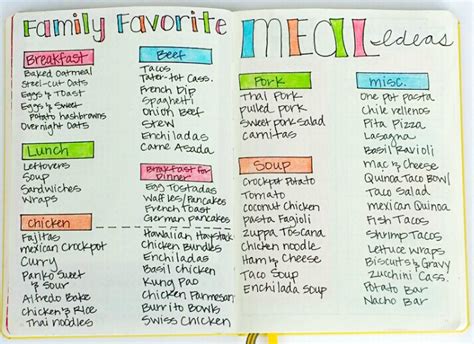 Family Favorite
MEAL Ideas
Breakfast
Baked Oatmeal
Steel-cut Oats
Eggs & Toast
Eggs & Sweet
Potato hashbrowns
Overnight Oats
Lunch
Leftovers
Soup
Sandwiches
Wraps
Chicken
Fajitas
mexican Crockpot
Curry
Panko Sweet
& Sour
Alfredo Bake
Chicken & Rice
Thai noodles
Beef
Tacos
Tater-tot Cass.
French Dip
Spaghetti
Onion Beef
Stew
Enchiladas
Carne Asada
Breakfast for
Dinner
Egg Tostadas
Waffles/Pancakes
French Toast
German pancakes
Hawaiian Haystack
Chicken Bundles
Enchiladas
Basil Chicken
Kung Pao
Chicken Parmesan
Burrito Bowls
Swiss Chicken
Pork
Thai Pork
pulled pork
Sweet pork Salad
Carnitas
Soup
Crockpot Potato
Tomato
coconut Chicken
pasta Fagioli
Zuppa Toscana
Chicken noodle
Ham & Cheese
Taco Soup
Enchilada Soup
misc.
One pot pasta
Chile rellenos
Pita Pizza
Lasagna
Basil Ravioli
Mac & Cheese
Quinoa Taco Bowl
Taco Salad
mexican Quinoa
Fish Tacos
Shrimp Tacos
Lettuce Wraps
Biscuits & Gravy
Zucchini Cass.
Potato Bar
Nacho Bar